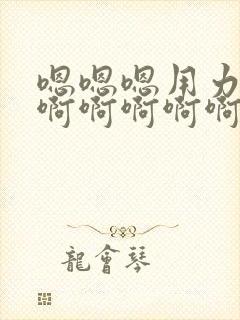 嗯嗯嗯用力
啊啊啊啊啊
龍會琴